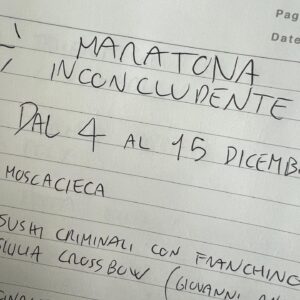 Pag
Date
MARATONA
INCONCLUDENTE
DAL 4 AL 15 DICEMB
MOSCACIECA
SUSHI CRIMINALI CON FRANCHINO
GIULIA CROSSBOW (GIOVANNI